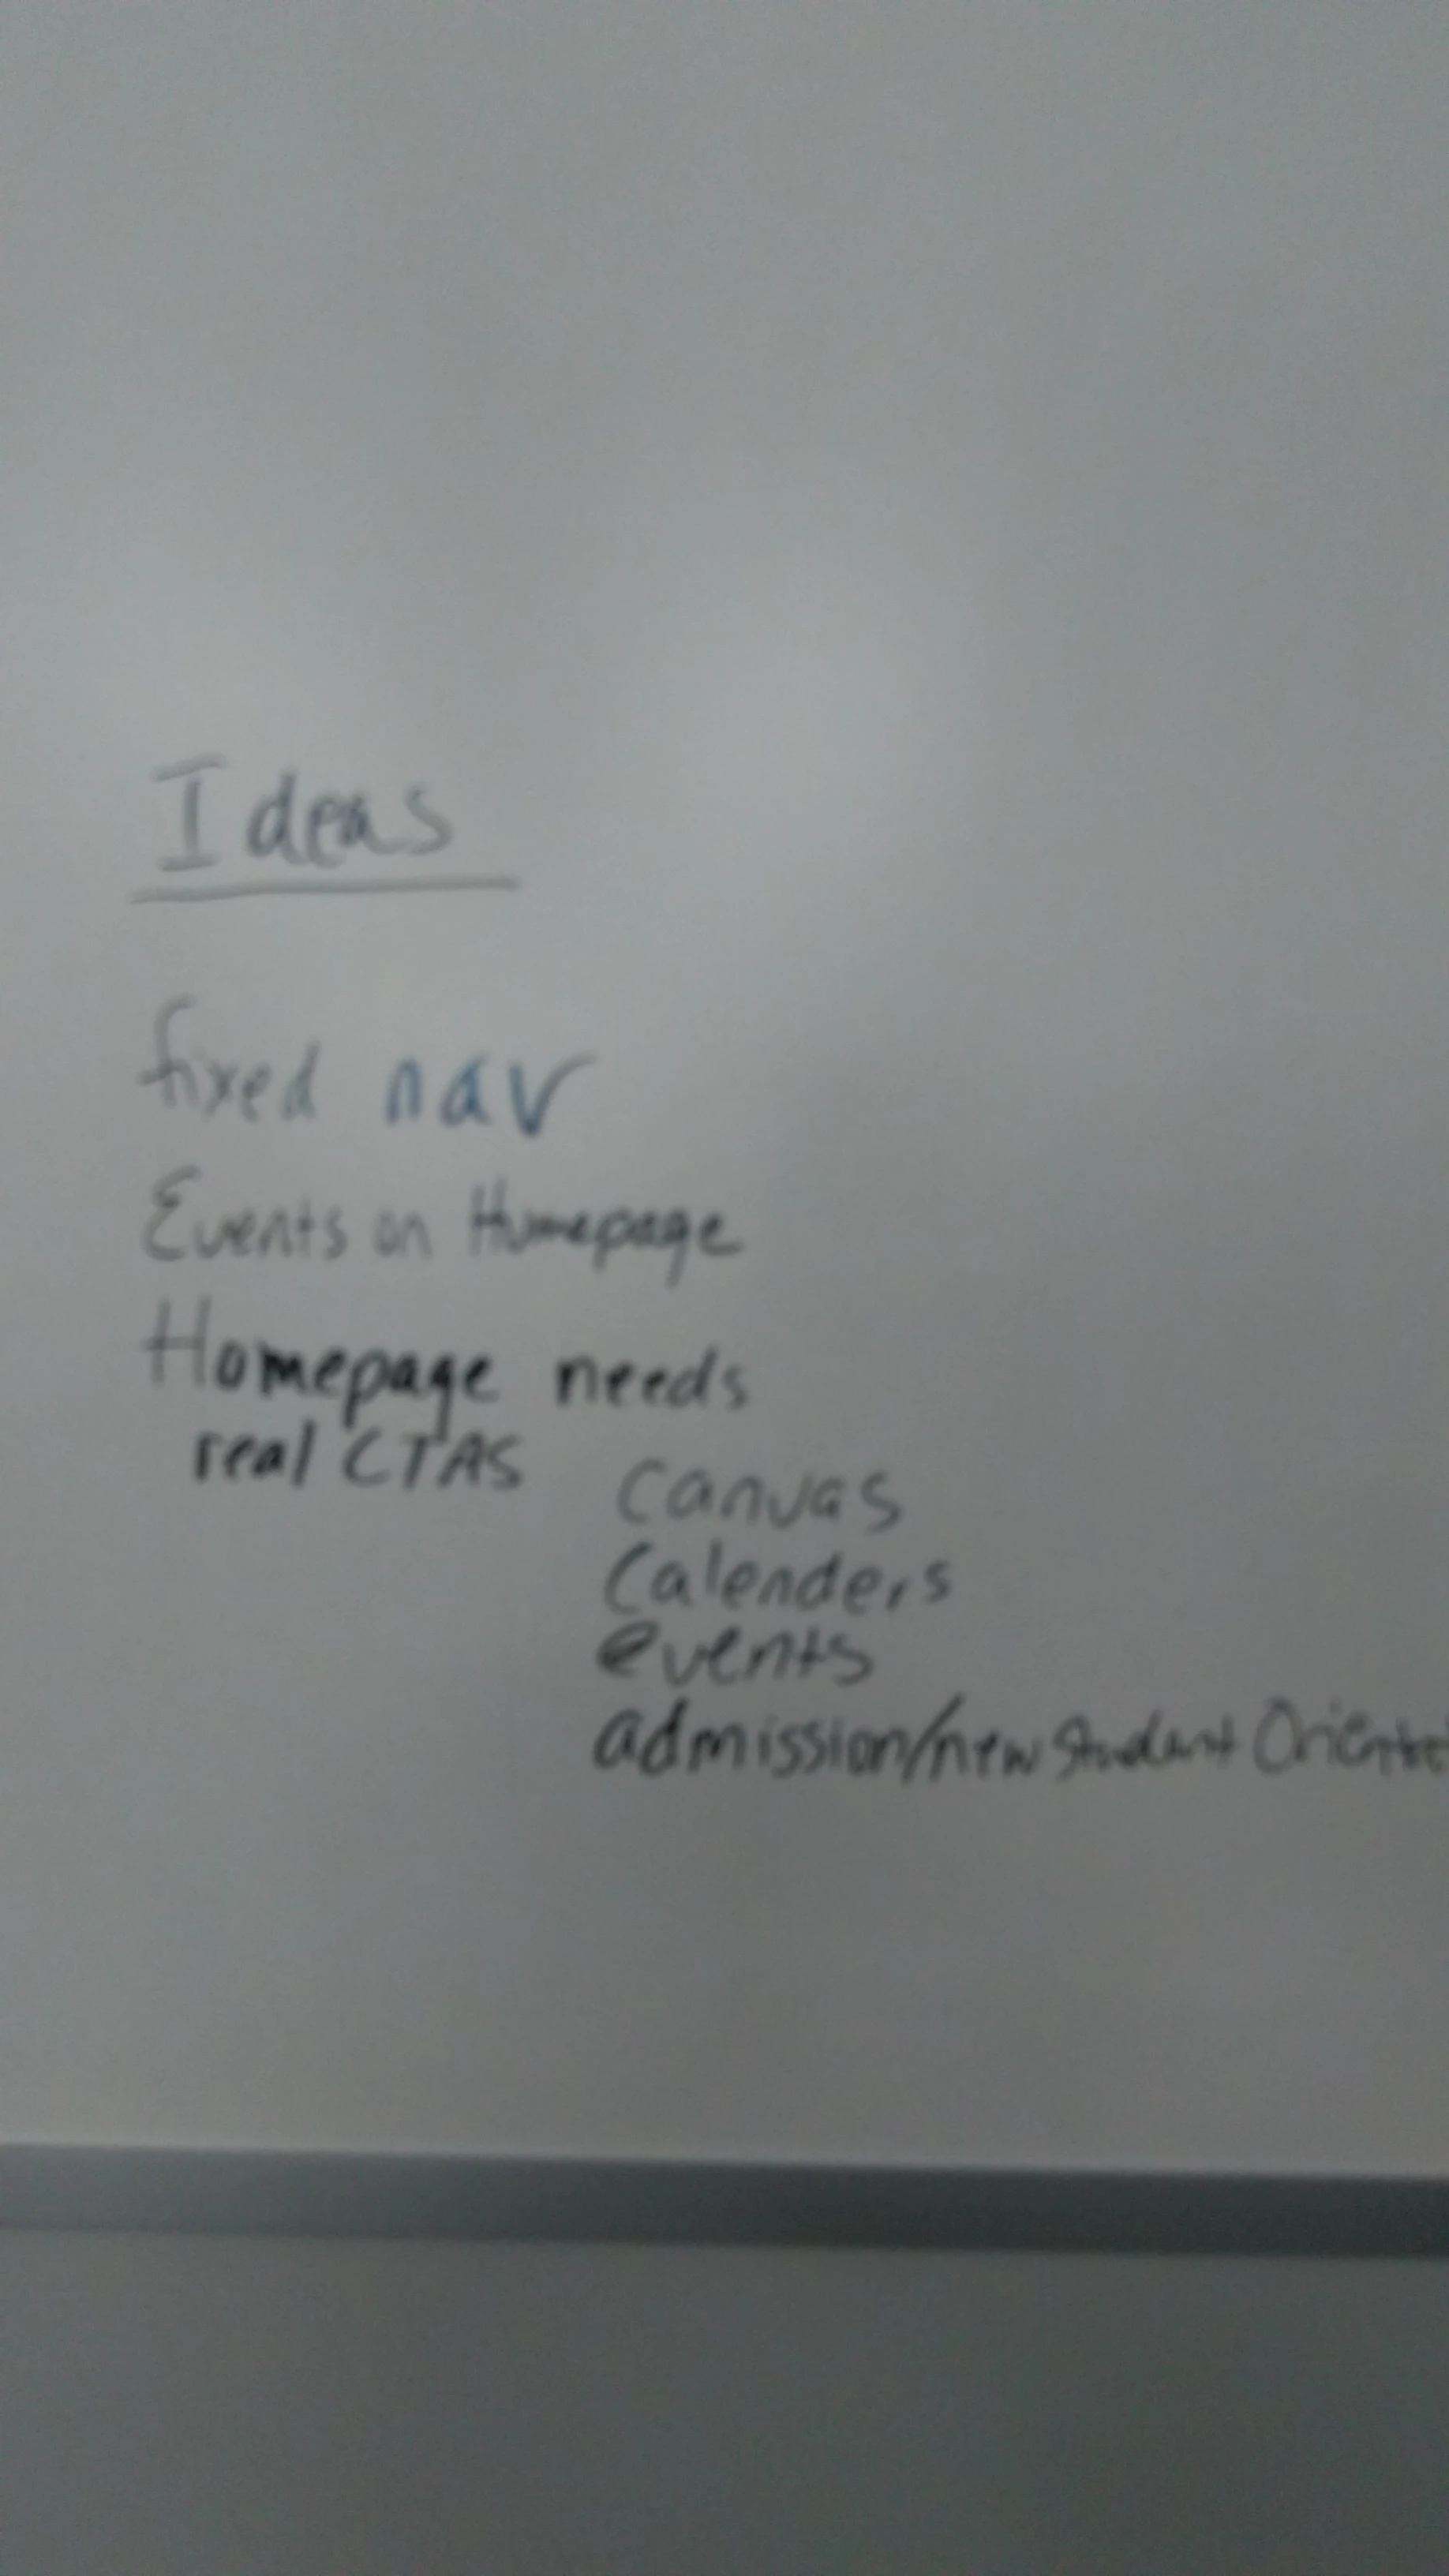 Ideas
fixed nav
Events on Homepage
Homepage needs
real CTAS
Canvas
Calenders
events
admission/new Student